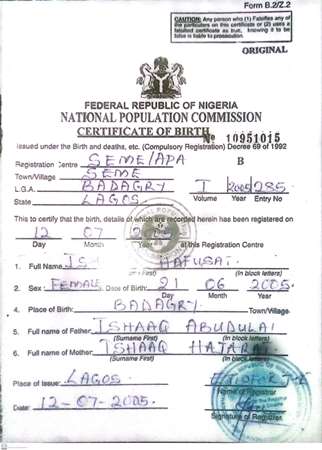 Form B.2/Z.2
CAUTION: Any person who (1) Falsifies any of
the particulars on this certificate or (2) uses a
falsified certificate as true, knowing it to be
false is liable to prosecution.
ORIGINAL
FEDERAL REPUBLIC OF NIGERIA
NATIONAL POPULATION COMMISSION
CERTIFICATE OF BIRTH № 10951015
Issued under the Birth and deaths, etc. (Compulsory Registration) Decree 69 of 1992
Registration Centre SEME/APA B
Town/Village SEME
L.G.A. BADAGRY I 2005 285
State LAGOS Volume Year Entry No
This to certify that the birth, details of which are recorded herein has been registered on
12 07
Day Month Year at this Registration Centre
1. Full Name HAFUSAT
First) (In block letters)
2. Sex: FEMALE Date of Birth: 21 06 2005
Day Month Year
4. Place of Birth: BADAGRY Town/Village.
5. Full name of Father ISHAAQ ABUDULAI
(Surname First) (In block letters)
6. Full name of Mother: ISHAAQ HAJARAT
(Surname First) (In block letters)
Place of Issue: LAGOS
Name of Registrar
Date: 12-07-2005
Signature of Registrar